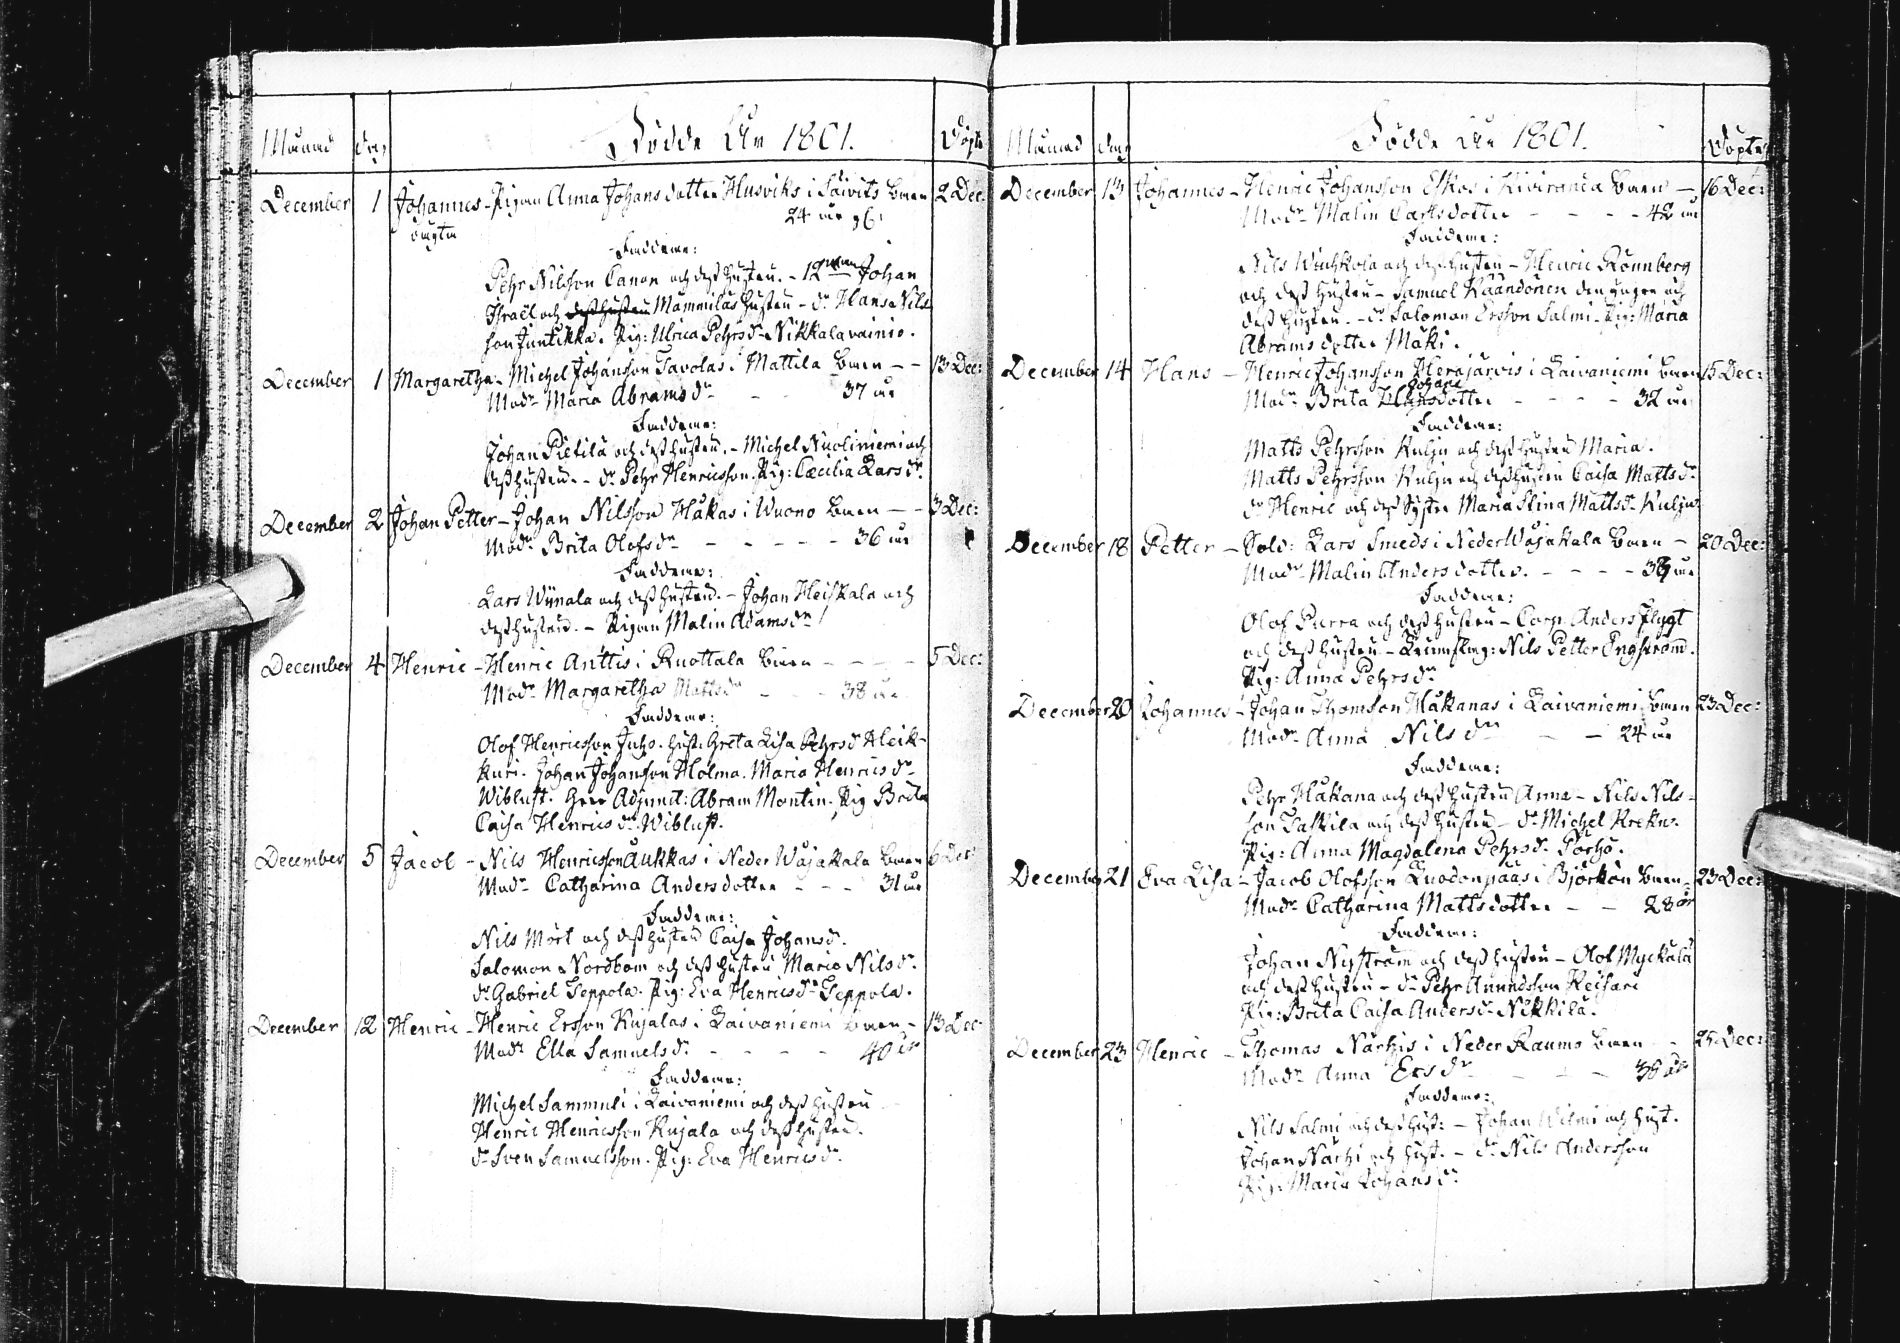 Månad dag Födde År 1801. Döpte
December 1 Johannes - Pigan Anna Johansdotter Husviks i Säivits barn 2 Dec:
oägta 24 år g6:
Faddrar:
Pehr Nilsson Canon och dess hustru. - 12 man Johan
Israël och dess hustru Mämmiläs hustru - Dr Hans Nils
son Juntikka. Pig: Ulrica Pehrsdr Nikkalavainio.
December 1 Margaretha - Michel Johansson Tavolas i Mattila barn - - 13 Dec:
Modr Maria Abramsdr - - 37 år
Faddrar:
Johan Pietilä och dess hustru. - Michel Nuoliniemi och
dess hustru. - Dr Pehr Henricsson. Pig: Cæcilia Larsdr.
December 2 Johan Petter - Johan Nilsson Håkas i Wuono barn - - 3 Dec:
Modr Brita Olofsdr - - - - - 36 år
Faddrar:
Lars Wünala och dess hustru. - Johan Heiskala och
dess hustru. - Pigan Malin Adamsdr
December 4 Henric - Henric Anttis i Ruottala barn - - - - 5 Dec:
Modr Margaretha Mattsdr - - - 38 år
Faddrar:
Olof Henricsson Juho. Hust: Greta Lisa Pehrsdr Kleik-
kuri. Johan Johansson Holma. Maria Henricsdr
Wiblust. Herr Adjunct: Abram Montin. Pig Brita
Caisa Henricsdr Wiblust.
December 5 Jacob - Nils Henricsson Aukkas i Neder Wojakala barn 6 Dec:
Modr Catharina Andersdotter - - - 31 år
Faddrar:
Nils Mört och dess hustru Caisa Johansdr.
Salomon Nordbom och dess hustru Maria Nilsdr.
Dr Gabriel Seppola. Pig: Eva Henricsdr Seppola.
December 12 Henric - Henric Ersson Kujalas i Laivaniemi barn - 13 Dec:
Modr Ella Samuelsdr. - - - - 40 år
Faddrar:
Michel Sammuli i Laivaniemi och dess hustru
Henric Henricsson Kujala och dess hustru.
Dr Sven Samuelsson. Pig: Eva Henricsdr.
Månad dag Födde År 1801. Döpte
December 13 Johannes - Henric Johansson Eskos i Kiviranta barn - 16 Dec:
Modr Malin Carlsdotter - - - - 42 år
Faddrar:
Nils och dess hustru - Henric Rönnberg
och dess hustru - Samuel Kaandonen den yngre och
dess hustru. - Dr Salomon Ersson Salmi - Pig: Maria
Abramsdotter Mäki.
December 14 Hans - Henric Johansson Herajärvis i Laivaniemi barn 15 Dec:
Johans
Modr Brita Hansdotter - - - - 32 år
Faddrar:
Matts Pehrsson Kulju och dess hustru Maria.
Matts Pehrsson Kulju och dess hustru Caisa Mattsdr.
Dr Henric och dess Syster Maria Stina Mattsdr Kulju.
December 18 Petter - Sold: Lars Smeds i Neder Wojakala barn - 20 Dec:
Modr Malin Andersdotter. - - - - 39 år
Faddrar:
Olof Purra och dess hustru - Corp. Anders Flygt
och dess hustru - Nils Petter Engström.
Pig: Anna Pehrsdr
December 20 Johannes - Johan Thomson Håkanas i Laivaniemi barn 23 Dec:
Modr Anna Nilsdr - - 24 år
Faddrar:
Pehr Håkana och dess hustru Anna - Nils Nils-
son Taskila och dess hustru - Dr Michel Krekn.
Pig: Anna Magdalena Pehrsdr Pörhö.
December 21 Eva Lisa - Jacob Olofsson Luodonpääs i Björkön barn - 23 Dec:
Modr Catharina Mattsdotter - - 28 år
Faddrar:
Johan Nyström och dess hustru - Olof Myckälä
och dess hustru - Dr Pehr Anundsson Keisari
Pig: Brita Caisa Andersdr Nikkilä.
December 23 Henric - Thomas Närhis i Neder Raumo barn - - 25 Dec:
Modr Anna Ersdr - - - 38 år
Faddrar:
Nils Salmi och dess hust: - Johan Wilmi och hust.
Johan Närhi och hust. - Dr Nils Andersson
Pig: Maria Johansdr